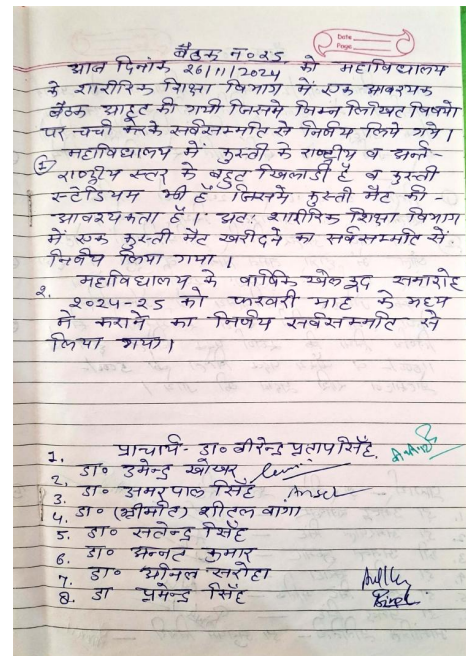 Date
Page
बैठक न० २५
आज दिनांक 26/11/2024 को महाविद्यालय
के शारीरिक शिक्षा विभाग में एक आवश्यक
बैठक आहूट की गयी जिसमे निम्न लिखित विषयो
पर चर्चा करके सर्वसम्मति से निर्णय लिये गये।
① महाविद्यालय में कुस्ती के राष्ट्रीय व अर्न्त-
राष्ट्रीय स्तर के बहुट खिलाडी हैं व कुस्ती
स्टेडियम भी है जिसमें कुस्ती मैट की -
आवश्यकता है। अट: शारीरिक शिक्षा विभाग
में एक कुस्ती मैट खरीदने का सर्वसम्मति से
निर्णय लिया गया।
२. महाविद्यालय के वार्षिक खेल कूद समारोह
२०२४-२५ को फरवरी माह के मध्य
मे कराने का निर्णय सर्वसम्मति से
लिया गया।
1. प्राचार्य- डा० वीरेन्द्र प्रताप सिँह
2. डा० उमेन्द्र
3. डा० अमरपाल सिँह
4. डा० (श्रीमति) शीटल वागा
5. डा० सतेन्द्र सिँह
6. डा० अन्नट कुमार
7. डा० अनिल सरोहा
8. डा प्रमेन्द्र सिँह